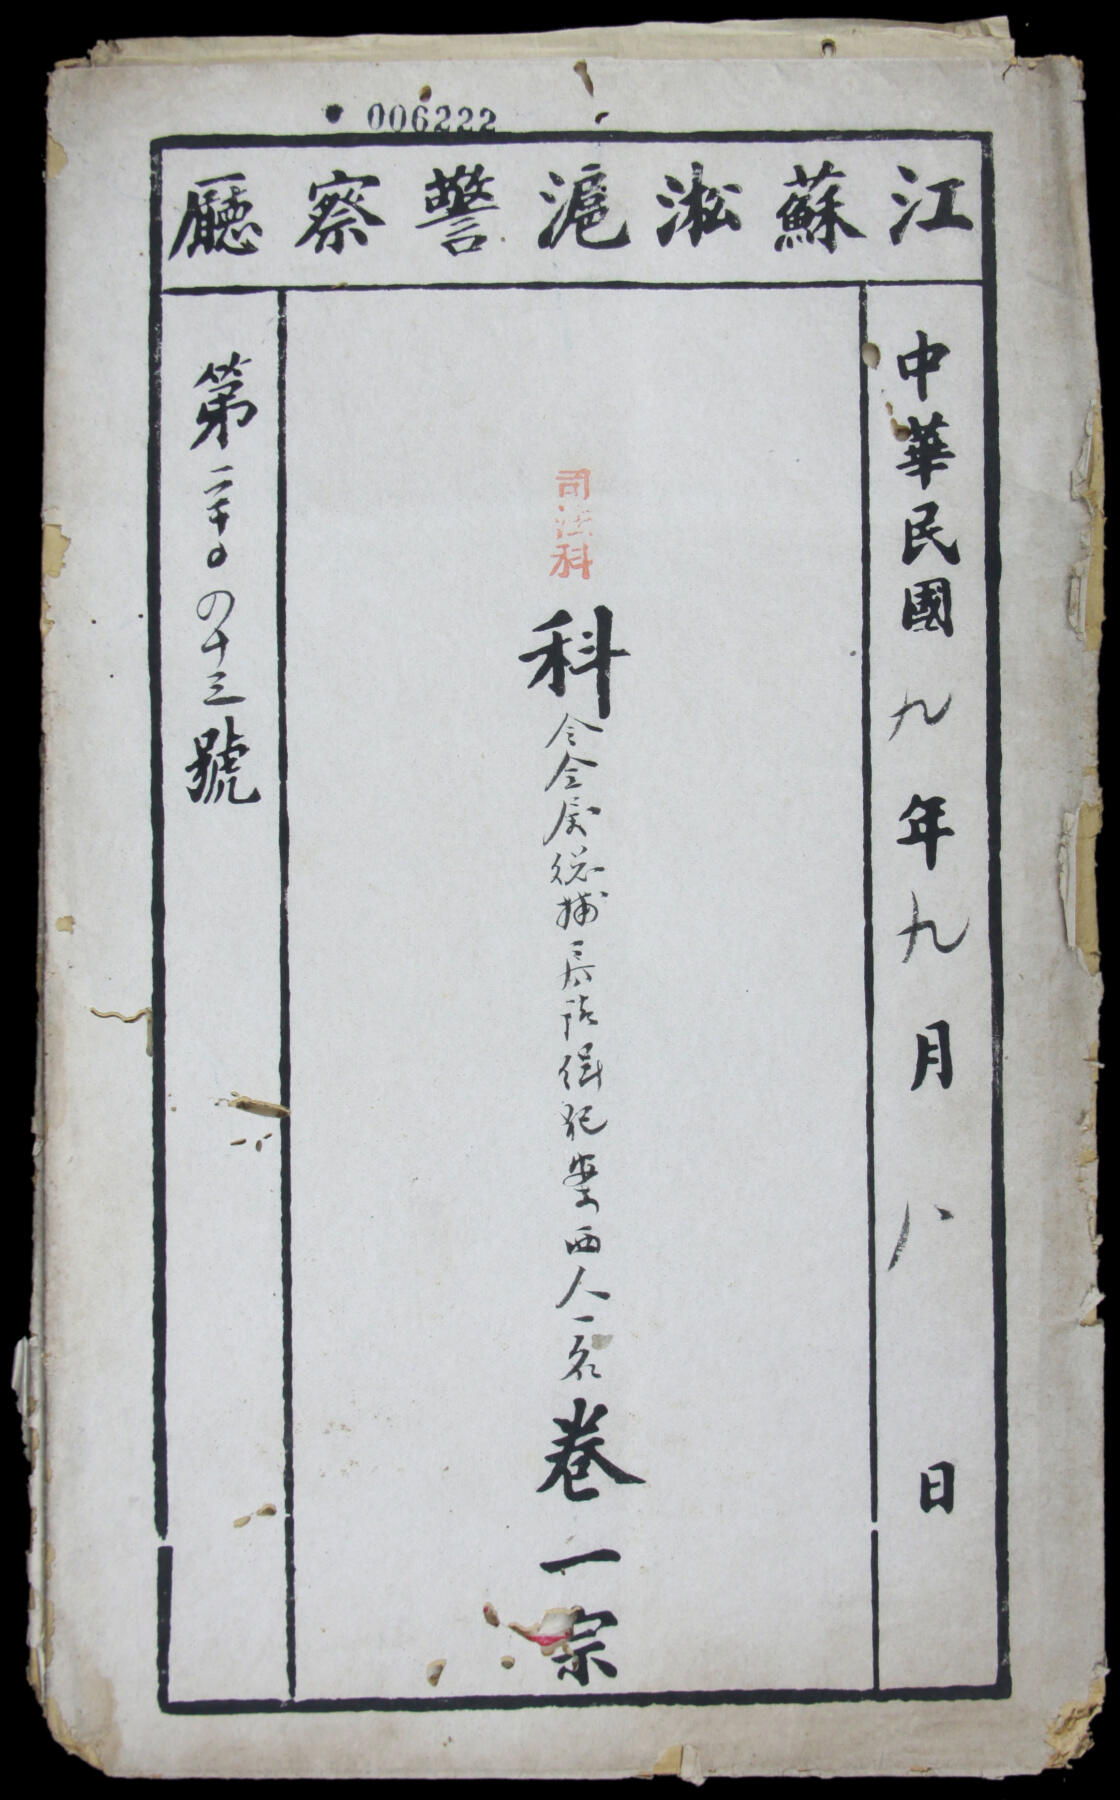 006222
江蘇淞滬警察廳
中華民國九年九月八日
司法科
科
捕房
犯案西人一名
卷一宗
第二千〇四十三號